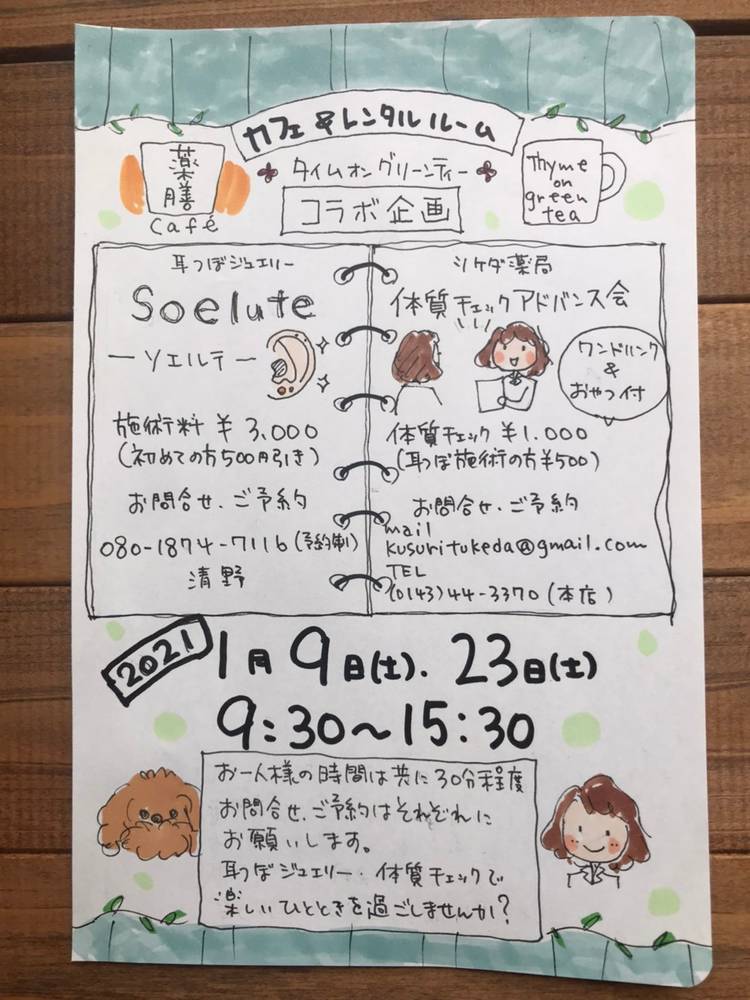 カフェ&レンタルルーム
薬膳
Café
タイムオングリーンティー
コラボ企画
Thyme
on
green
tea
耳つぼジュエリー
Soelute
ーソエルテー
施術料 ¥3,000
(初めての方500円引き)
お問合せ、ご予約
080-1874-7116(予約制)
清野
ツケダ薬局
体質チェックアドバンス会
ワンドリンク
&
おやつ付
体質チェック ¥1.000
(耳つぼ施術の方¥500)
お問合せ、ご予約
mail
kusuritukeda@gmail.com
TEL
(0143)44-3370(本店)
2021
1月9日(土)、23日(土)
9:30〜15:30
お一人様の時間は共に30分程度
お問合せ、ご予約はそれぞれに
お願いします。
耳つぼジュエリー・体質チェックで
楽しいひとときを過ごしませんか?